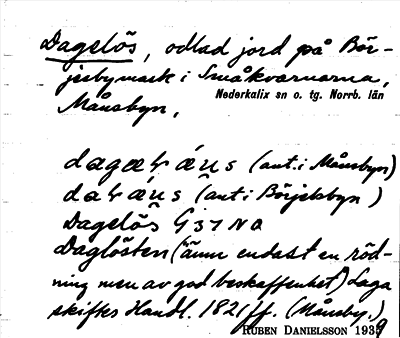 Dagslös, odlad jord på Bör-
jesbymark i Småkvarnarna,
Nederkalix sn o. tg. Norrb. län
Månsbyn,
(ant. i Månsbyn)
(ant. i Börjelsbyn)
Dagslös G 37 NO
Daglösten ("ännu endast en röd-
ning men av god beskaffenhet") Laga
skiftes Handl. 1821 ff. (Månsby.)
RUBEN DANIELSSON 1939